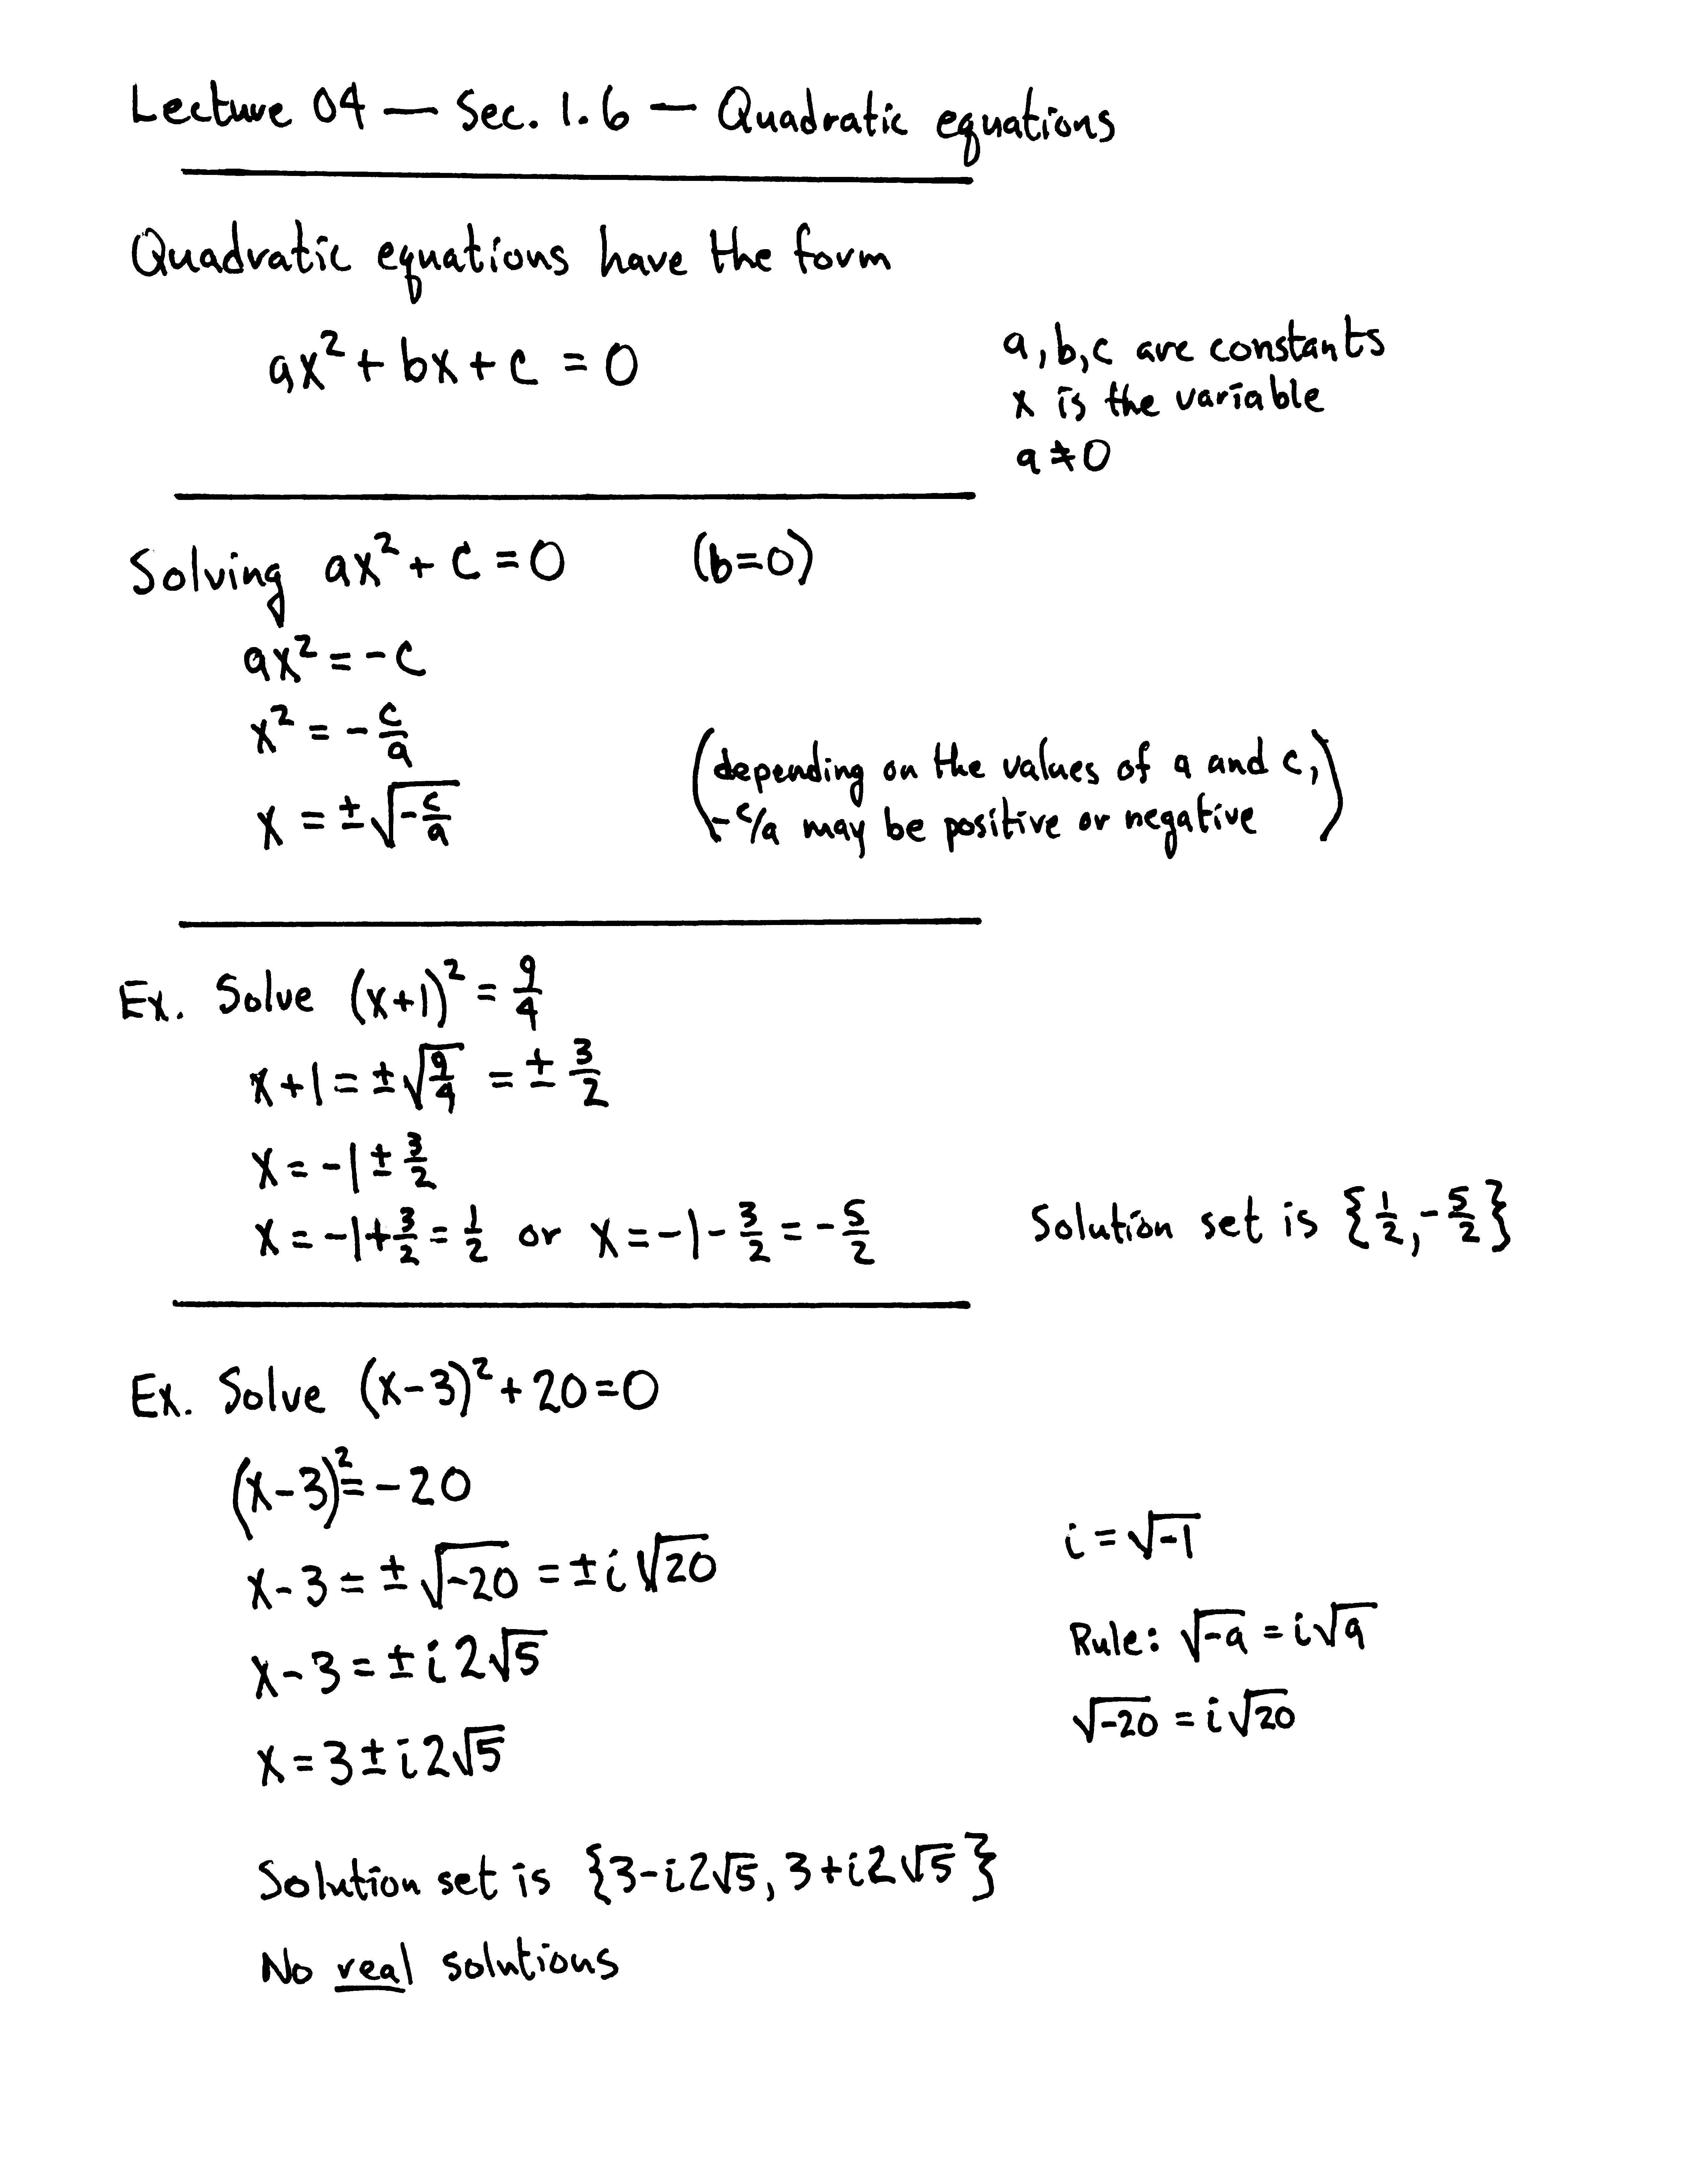 Lecture 04 — Sec. 1.6 — Quadratic equations
Quadratic equations have the form
ax² + bx + c = 0
a, b, c are constants
x is the variable
a ≠ 0
Solving ax² + c = 0 (b=0)
ax² = -c
x² = -c/a
x = ±√(-c/a)
(depending on the values of a and c,
-c/a may be positive or negative)
Ex. Solve (x+1)² = 9/4
x+1 = ±√(9/4) = ± 3/2
x = -1 ± 3/2
x = -1 + 3/2 = 1/2 or x = -1 - 3/2 = -5/2
Solution set is {1/2, -5/2}
Ex. Solve (x-3)² + 20 = 0
(x-3)² = -20
x-3 = ±√-20 = ±i√20
x-3 = ±i2√5
x = 3 ± i2√5
i = √-1
Rule: √-a = i√a
√-20 = i√20
Solution set is {3-i2√5, 3+i2√5}
No real solutions